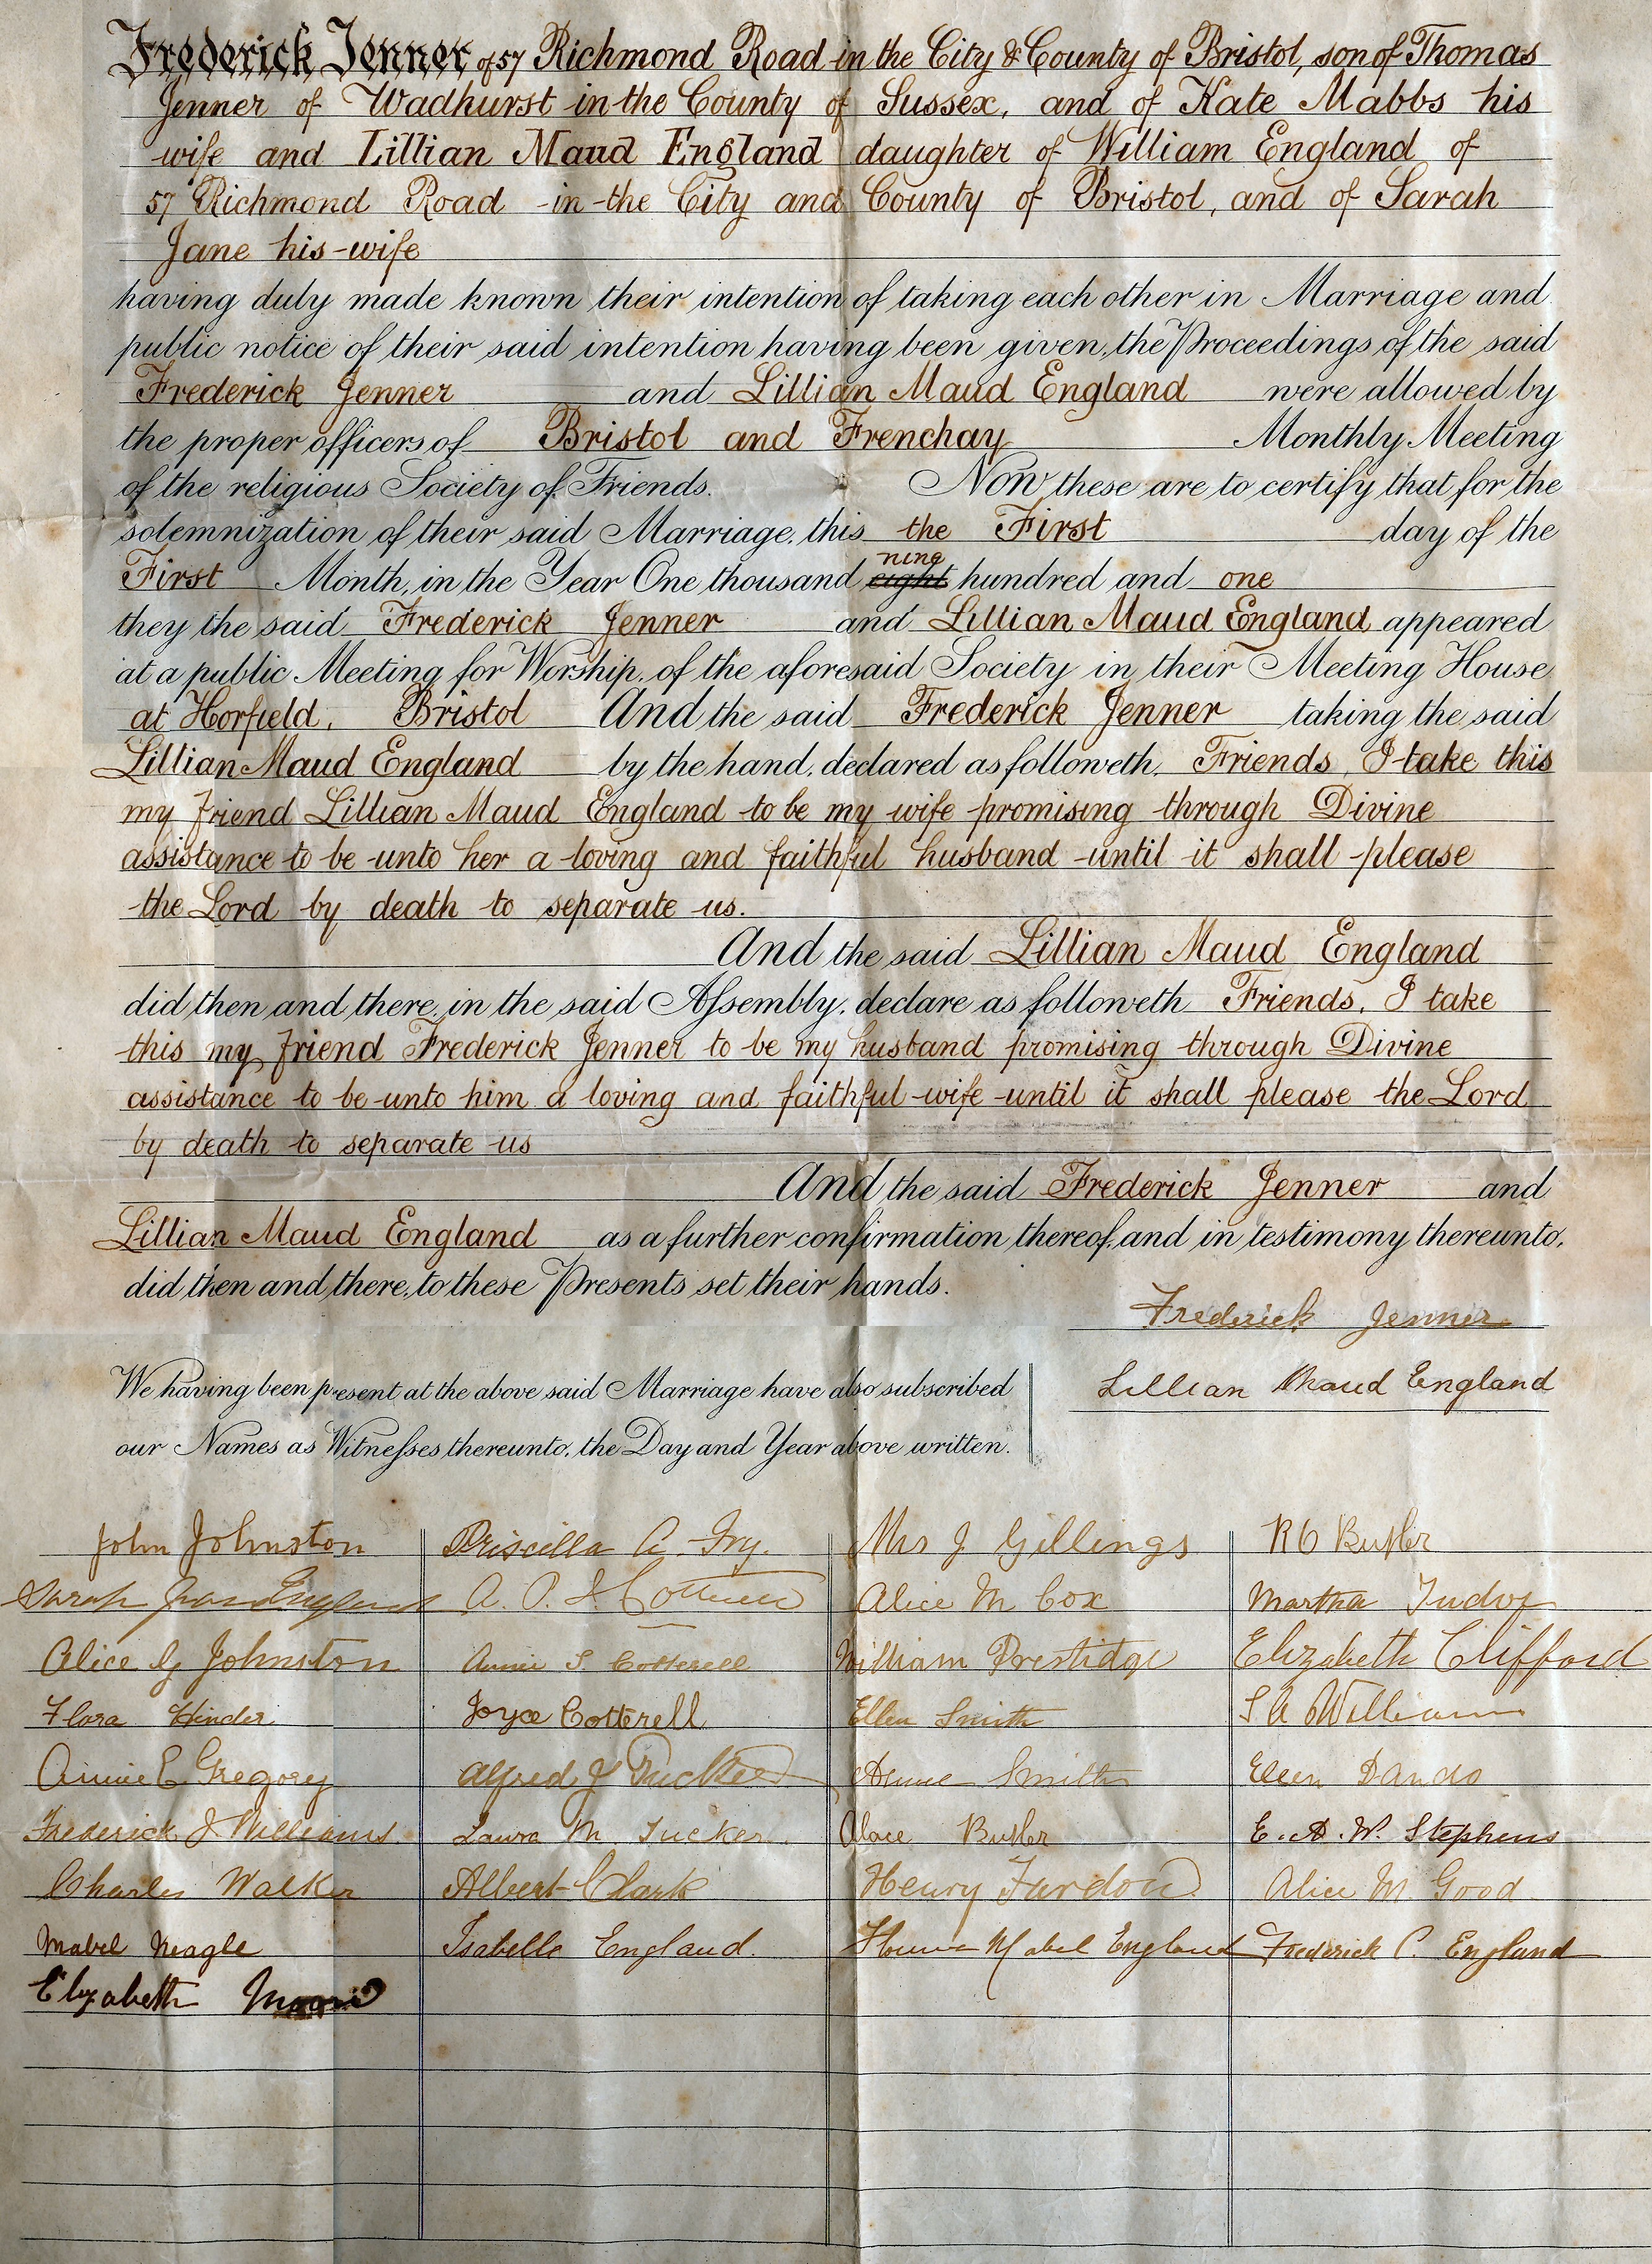 Frederick Jenner of 57 Richmond Road in the City & County of Bristol, son of Thomas
Jenner of Wadhurst in the County of Sussex, and of Kate Mabbs his
wife and Lillian Maud England daughter of William England of
57 Richmond Road in the City and County of Bristol, and of Sarah
Jane his wife
having duly made known their intention of taking each other in Marriage and
public notice of their said intention having been given, the Proceedings of the said
Frederick Jenner and Lillian Maud England were allowed by
the proper officers of Bristol and Frenchay Monthly Meeting
of the religious Society of Friends. Now these are to certify that for the
solemnization of their said Marriage, this the First day of the
nine
First Month, in the Year One thousand eight hundred and one
they the said Frederick Jenner and Lillian Maud England appeared
at a public Meeting for Worship, of the aforesaid Society in their Meeting House
at Horfield, Bristol And the said Frederick Jenner taking the said
Lillian Maud England by the hand, declared as followeth, Friends, I take this
my friend Lillian Maud England to be my wife promising through Divine
assistance to be unto her a loving and faithful husband until it shall please
the Lord by death to separate us.
And the said Lillian Maud England
did then and there, in the said Assembly, declare as followeth Friends, I take
this my friend Frederick Jenner to be my husband promising through Divine
assistance to be unto him a loving and faithful wife until it shall please the Lord
by death to separate us
And the said Frederick Jenner and
Lillian Maud England as a further confirmation thereof, and in testimony thereunto,
did then and there, to these Presents set their hands.
Frederick Jenner
Lillian Maud England
We having been present at the above said Marriage have also subscribed
our Names as Witnesses thereunto, the Day and Year above written.
John Johnston
Sarah Jane England
Alice G Johnston
Flora Hinder
Annie E Gregory
Frederick J Williams.
Charles Walker
Mabel Neagle
Elizabeth
Priscilla A. Fry.
A. P. I. Cotterell
Annie S. Cotterell
Joyce Cotterell
Alfred J Tucker
Laura M. Tucker.
Albert Clark
Isabelle England.
Mrs J Gillings
Alice M Cox
William Prestidge
Ellen Smith
Smith
Butler
Henry Fardon
Mabel England
R O Butler
Martha Tudor
Elizabeth Clifford
S A Williams
Ellen Dando
E. A. W. Stephens
Alice M. Good
Frederick C. England